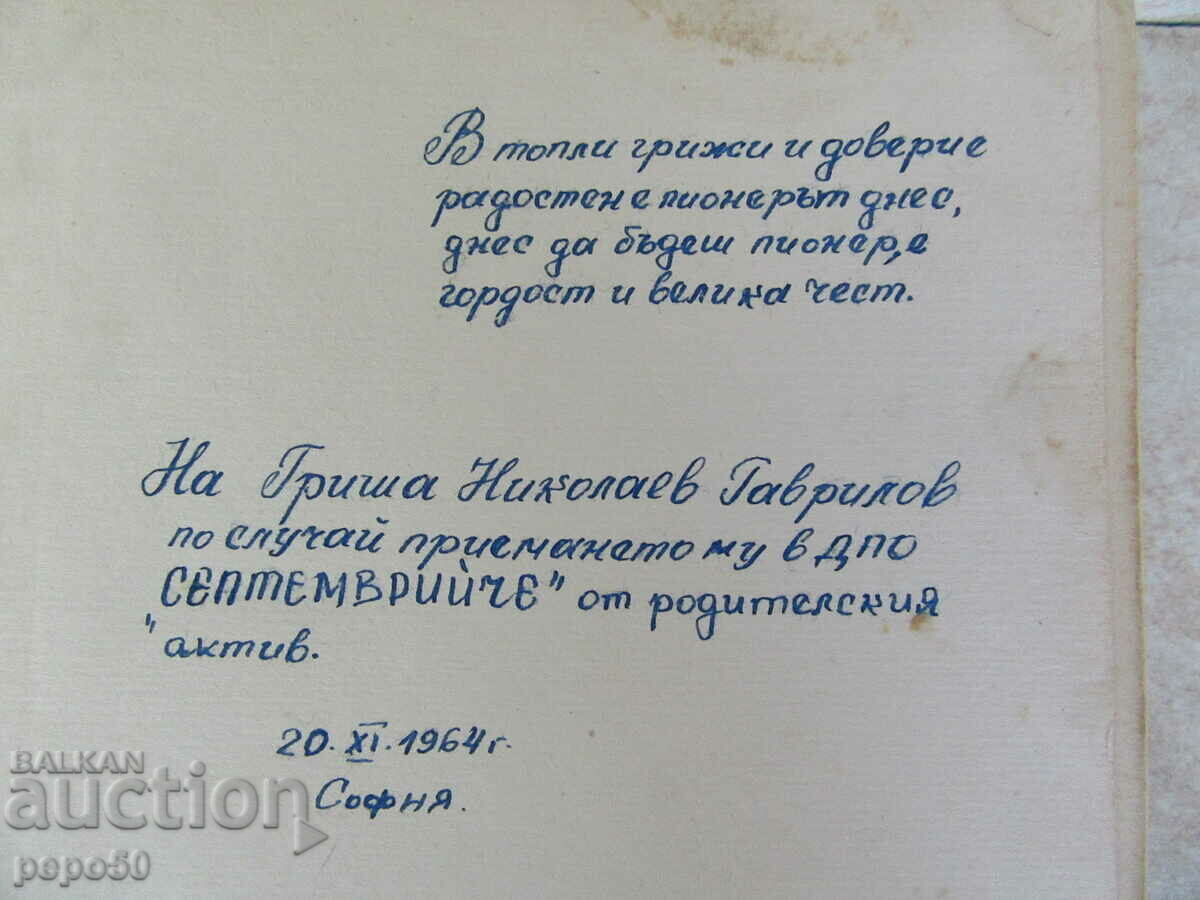 В топли грижи и доверие
радостен е пионерът днес,
днес да бъдеш пионер, е
гордост и велика чест.
На Гриша Николаев Гаврилов
по случай приемането му в ДПО
„СЕПТЕМВРИЙЧЕ" от родителския
актив.
20. XI. 1964 г.
София.
BALKAN
auction
pepo50